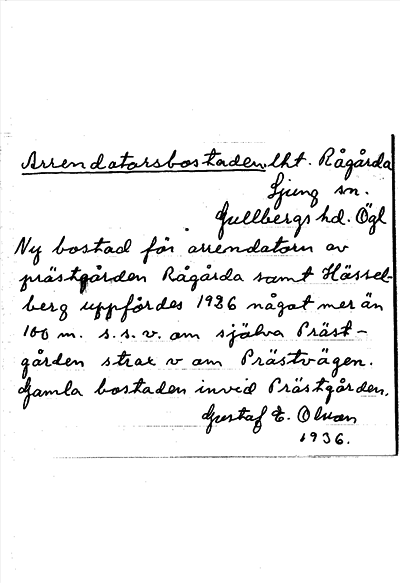 Arrendatorsbostaden, lht. Rågårda
Ljung sn.
Gullbergs hd. Ögl
Ny bostad för arrendatorn av
prästgården Rågårda samt Hässel-
berg uppfördes 1926 något mer än
100 m. s.s.v. om själva Präst-
gården strax v om Prästvägen.
Gamla bostaden invid Prästgården.
Gustaf E. Olsson
1936.